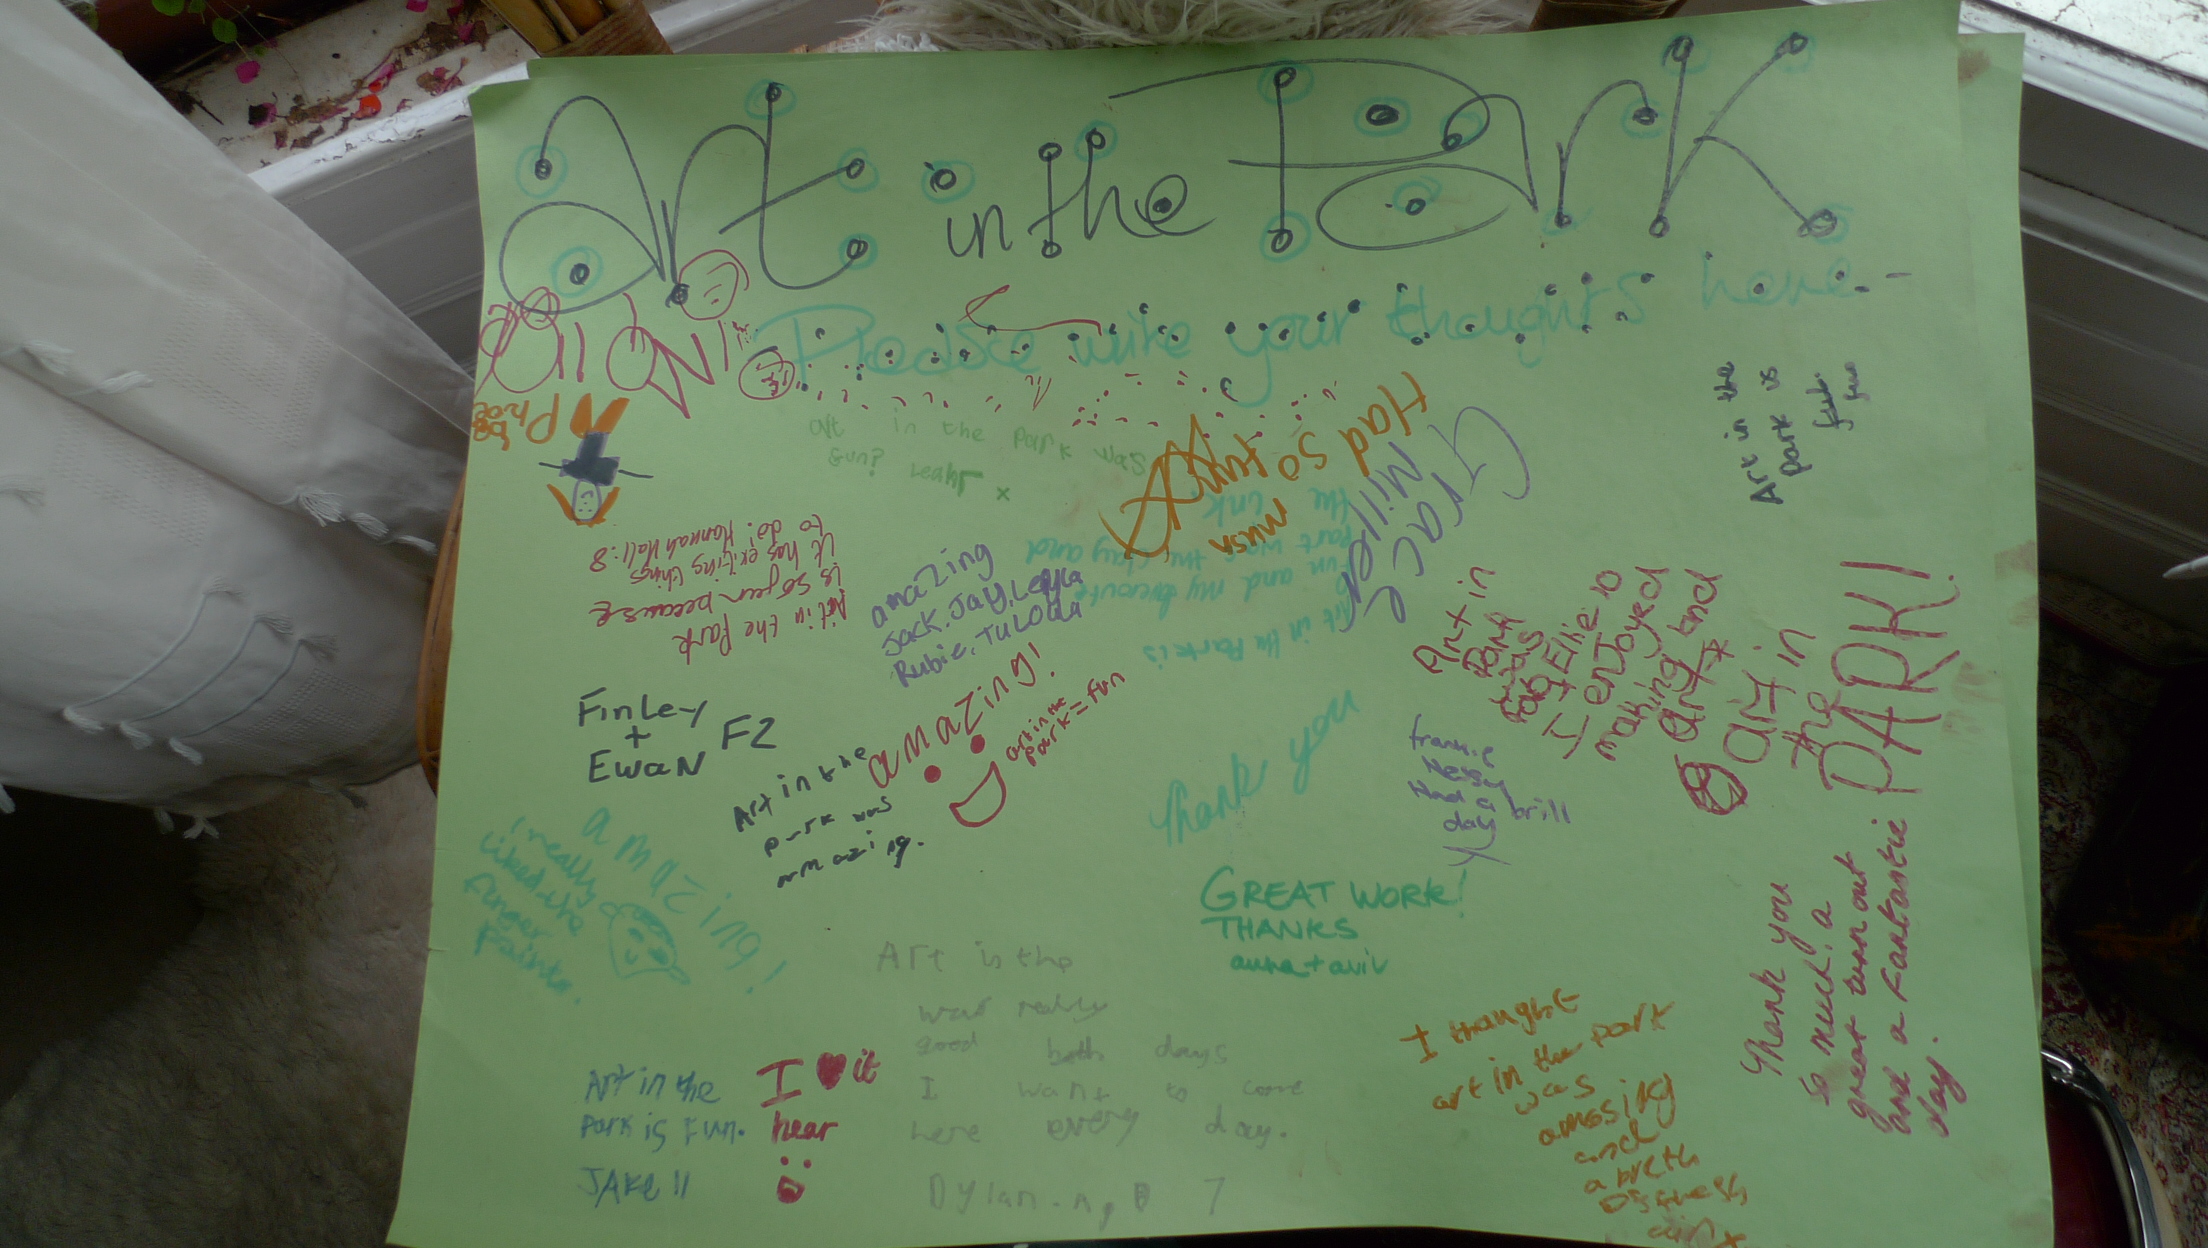 Art in the Park
Please write your thoughts here
art in the park was
fun? Leah x
Had so fun
MUSA
Grace
Millie
Art in the
park is
fub.
fun
Phoebe
Art in the Park
is so fun because
it has exiting things
to do! Hannah Hall:8
amazing
Jack, Jay, Leyla
Rubie, TuLoua
Art in the Park is
fun and my favroute
part was the clay and
the ink
Finley
+
Ewan F2
Art in the
park was
amazing.
amazing!
art in the
park = fun
Art in
Park
was
Ellie 10
I enJoyed
making
art and
art in
the
PARK!
frankie
had a
day brill
thank you
GREAT WORK!
THANKS
anna + aviv
amazing!
I really
liked the
finger
Paints.
Art is the
was really
good both days
I want to come
here every day.
Dylan 7
Art in the
park is fun.
JAKE 11
I ♥ it
hear
I thought
art in the park
was
amosing
and
a breth
of
air x
Thank you
so much. a
great turn out
and a fantastic
day.